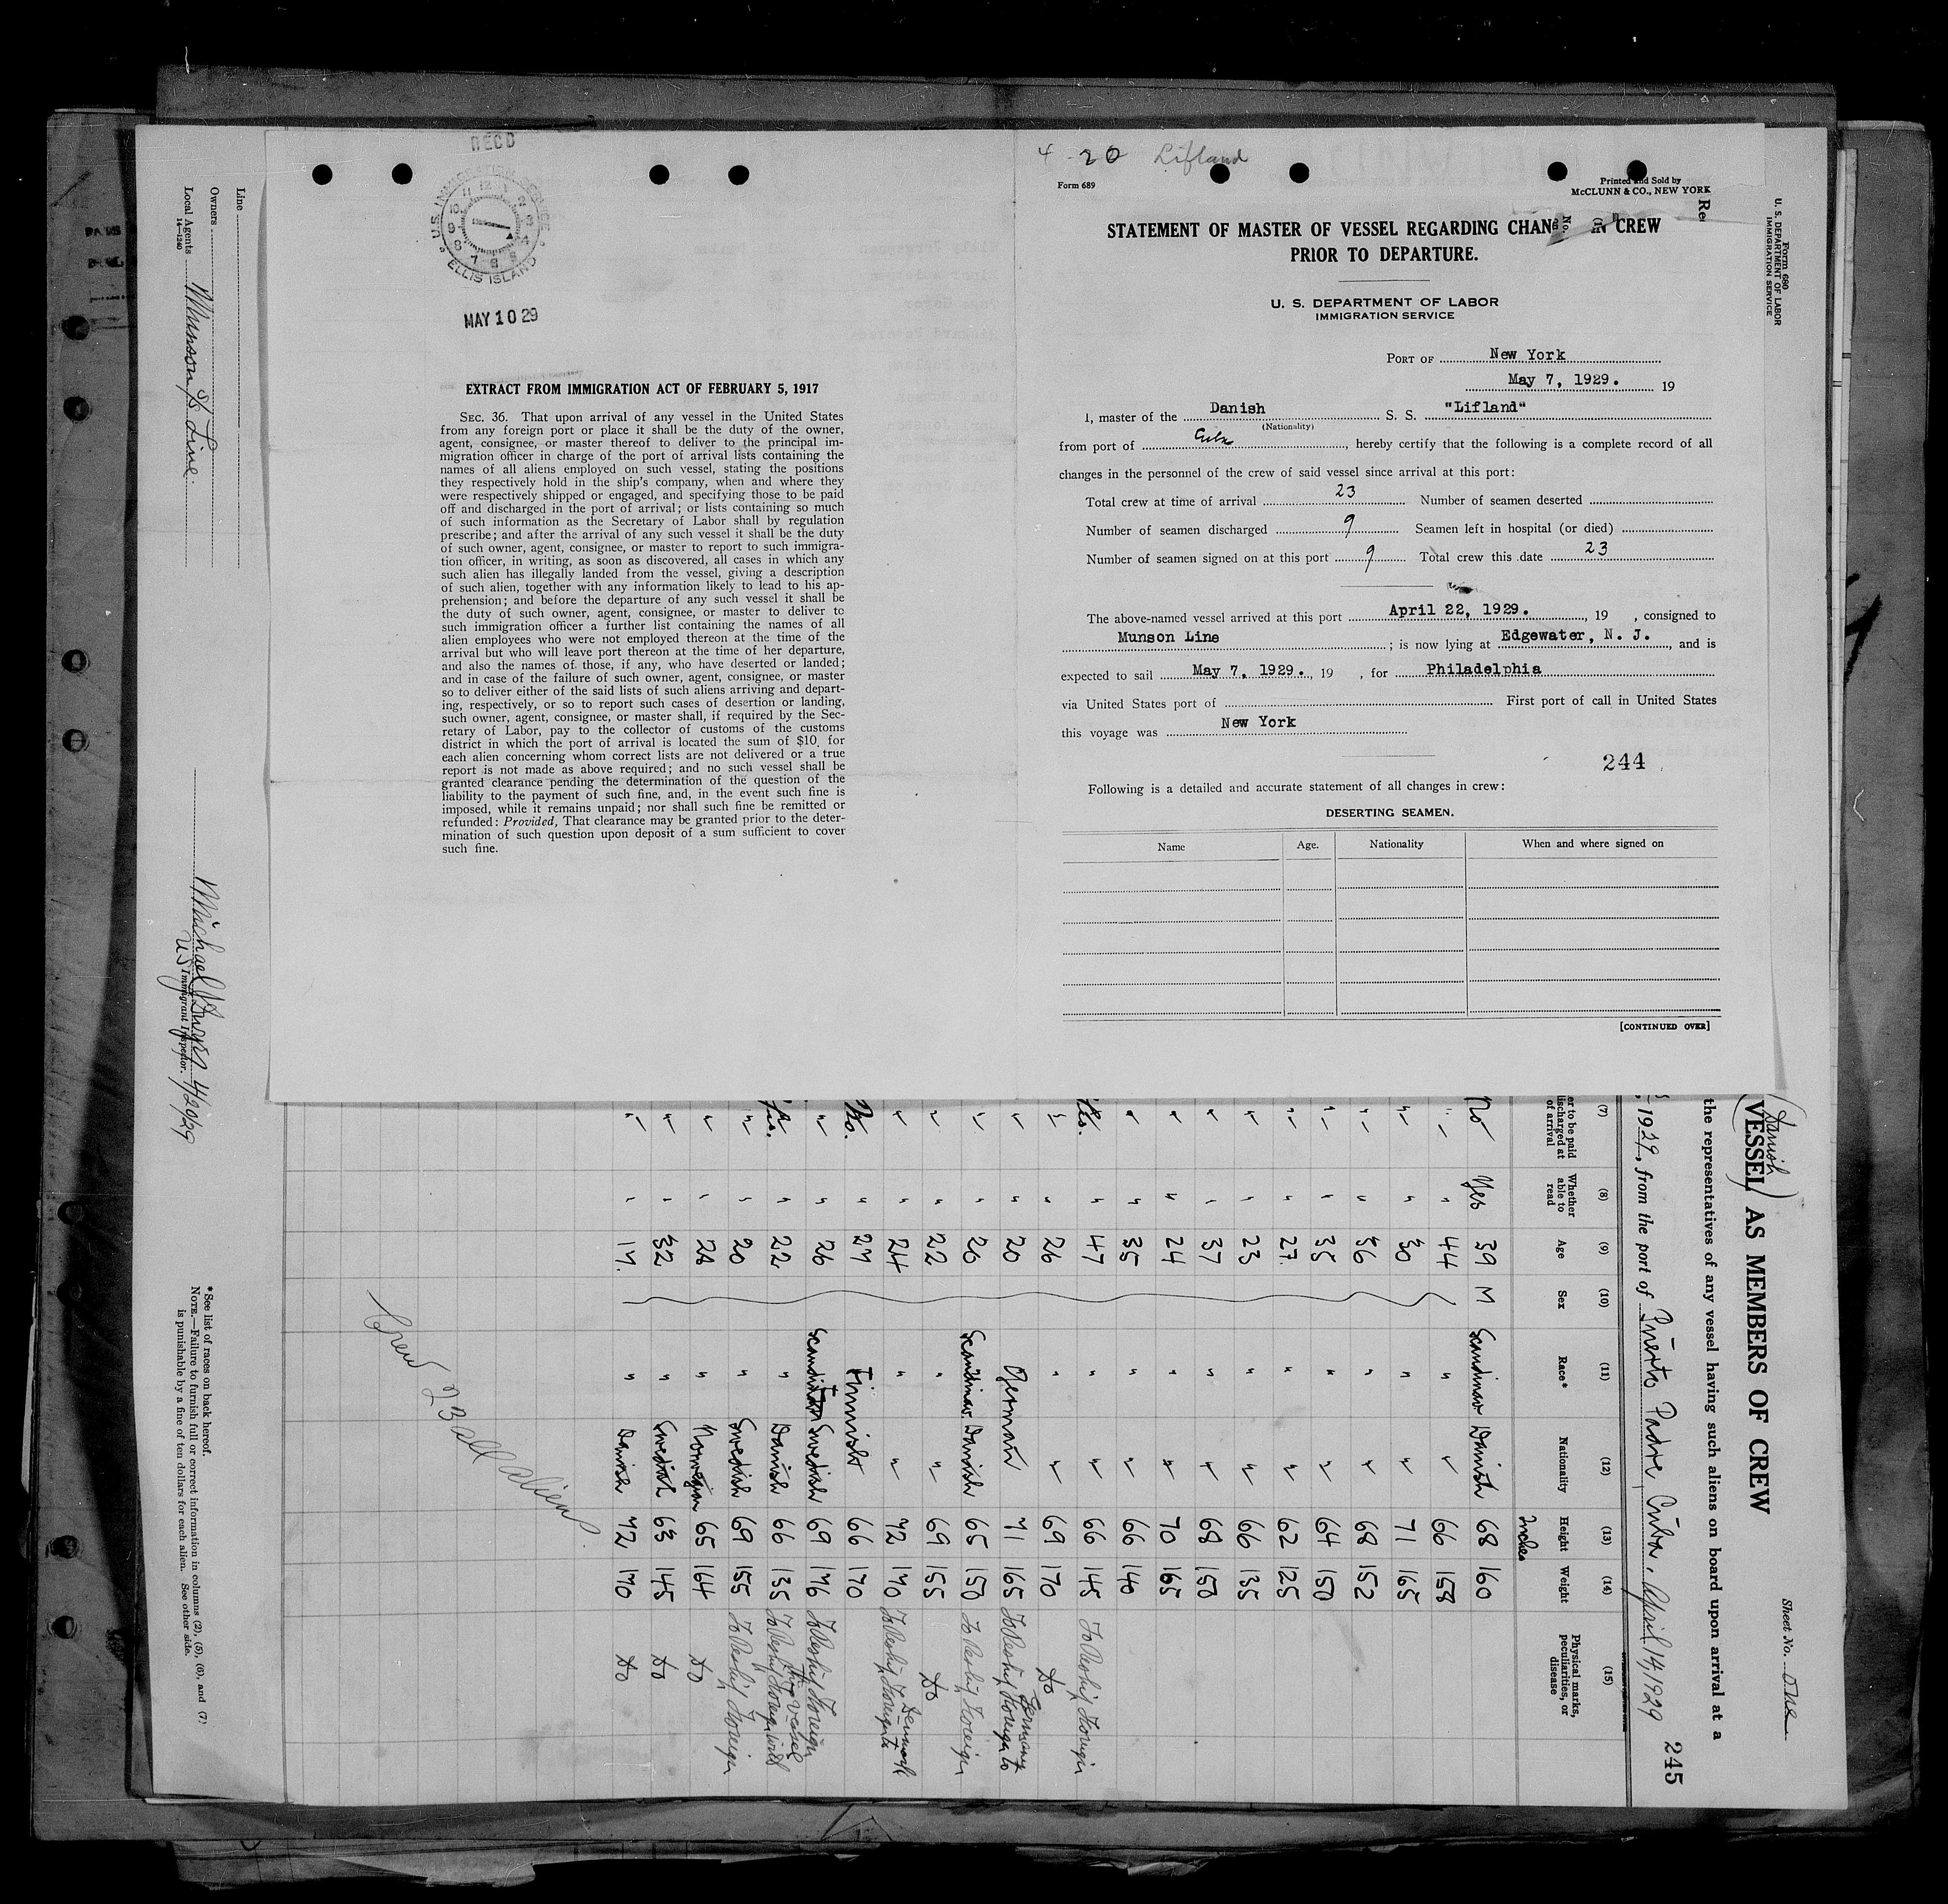 RECD
U.S. IMMIGRATION SERVICE
ELLIS ISLAND
MAY 10 29
EXTRACT FROM IMMIGRATION ACT OF FEBRUARY 5, 1917
SEC. 36. That upon arrival of any vessel in the United States
from any foreign port or place it shall be the duty of the owner,
agent, consignee, or master thereof to deliver to the principal im-
migration officer in charge of the port of arrival lists containing the
names of all aliens employed on such vessel, stating the positions
they respectively hold in the ship's company, when and where they
were respectively shipped or engaged, and specifying those to be paid
off and discharged in the port of arrival; or lists containing so much
of such information as the Secretary of Labor shall by regulation
prescribe; and after the arrival of any such vessel it shall be the duty
of such owner, agent, consignee, or master to report to such immigra-
tion officer, in writing, as soon as discovered, all cases in which any
such alien has illegally landed from the vessel, giving a description
of such alien, together with any information likely to lead to his ap-
prehension; and before the departure of any such vessel it shall be
the duty of such owner, agent, consignee, or master to deliver to
such immigration officer a further list containing the names of all
alien employees who were not employed thereon at the time of the
arrival but who will leave port thereon at the time of her departure,
and also the names of those, if any, who have deserted or landed;
and in case of the failure of such owner, agent, consignee, or master
so to deliver either of the said lists of such aliens arriving and depart-
ing, respectively, or so to report such cases of desertion or landing,
such owner, agent, consignee, or master shall, if required by the Sec-
retary of Labor, pay to the collector of customs of the customs
district in which the port of arrival is located the sum of $10. for
each alien concerning whom correct lists are not delivered or a true
report is not made as above required; and no such vessel shall be
granted clearance pending the determination of the question of the
liability to the payment of such fine, and, in the event such fine is
imposed, while it remains unpaid; nor shall such fine be remitted or
refunded: Provided, That clearance may be granted prior to the deter-
mination of such question upon deposit of a sum sufficient to cover
such fine.
4-20 Lifland
Form 689
Printed and Sold by
McCLUNN & CO., NEW YORK
STATEMENT OF MASTER OF VESSEL REGARDING CHANG IN CREW
PRIOR TO DEPARTURE.
U. S. DEPARTMENT OF LABOR
IMMIGRATION SERVICE
PORT OF New York
May 7, 1929. 19
I, master of the Danish S. S. "Lifland"
(Nationality)
from port of Cuba, hereby certify that the following is a complete record of all
changes in the personnel of the crew of said vessel since arrival at this port:
Total crew at time of arrival 23 Number of seamen deserted
Number of seamen discharged 9 Seamen left in hospital (or died)
Number of seamen signed on at this port 9 Total crew this date 23
The above-named vessel arrived at this port April 22, 1929., 19 , consigned to
Munson Line ; is now lying at Edgewater, N. J., and is
expected to sail May 7, 1929., 19 , for Philadelphia
via United States port of First port of call in United States
this voyage was New York
244
Following is a detailed and accurate statement of all changes in crew:
DESERTING SEAMEN.
Name Age. Nationality When and where signed on
[CONTINUED OVER]
Form 680
U. S. DEPARTMENT OF LABOR
IMMIGRATION SERVICE
Sheet No. One
(Danish
VESSEL) AS MEMBERS OF CREW
the representatives of any vessel having such aliens on board upon arrival at a
1929, from the port of Puerto Padre, Cuba, April 14, 1929
245
(7) (8) (9) (10) (11) (12) (13) (14) (15)
er to be paid
discharged at
of arrival
Whether
able to
read
Age Sex Race* Nationality Height Weight
Physical marks,
peculiarities, or
disease
Inches
No Yes 39 M Scandinav Danish 68 160
" " 44 " " 66 158
" " 30 " " 71 165
" " 36 " " 68 152
" " 35 " " 64 150
" " 27 " " 62 125
" " 23 " " 66 135
" " 37 " " 68 150
" " 24 " " 70 165
" " 35 " " 66 140
Yes. " 47 " " 66 145 To Reship Foreign
" " 26 " " 69 170 Do
" " 20 German 71 165 To Reship Foreign to Germany
" " 20 Scandinav. Danish 65 150 To Reship Foreign
" " 22 " " 69 155 Do
" " 24 " " 72 170 To Reship Foreign to Denmark
No. " 27 Finnish 66 170
" " 26 Scandinav Swedish 69 176 To Reship Foreign
Yes. " 22 " Danish 66 135 To Reship Foreign vessel
" " 20 " Swedish 69 155 To Reship Foreign
" " 28 " Norwegian 65 164 Do
" " 32 " Swedish 63 145 Do
" " 17. " Danish 72 170 Do
Crew 23 all aliens
Line
Owners
Local Agents Munson S/S Line.
14—1240
Michael 4/20/29
US Immigrant Inspector.
*See list of races on back hereof.
NOTE.—Failure to furnish full or correct information in columns (2), (5), (6), and (7)
is punishable by a fine of ten dollars for each alien. See other side.